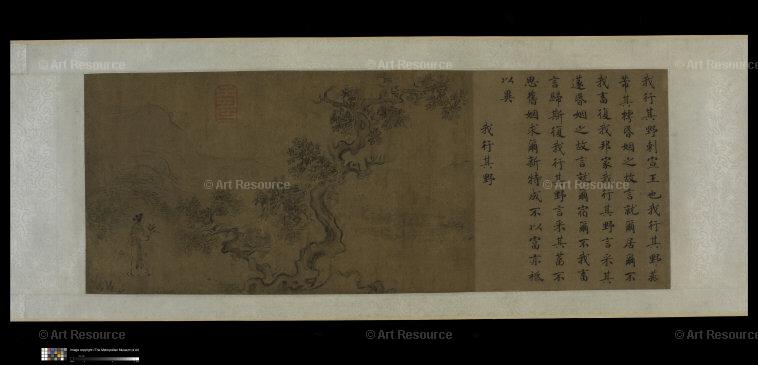 © Art Resource
© Art Resource
© Art Resource
我行其野刺宣王也我行其野蔽
芾其樗昏姻之故言就爾居爾不
我畜復我邦家我行其野言采其
蓫昏姻之故言就爾宿爾不我畜
言歸斯復我行其野言采其葍不
思舊姻求爾新特成不以富亦祗
以異
我行其野
© Art Resource
© Art Resource
© Art Resource
© Art Resource
© Art Resource
Image copyright ©The Metropolitan Museum of Art